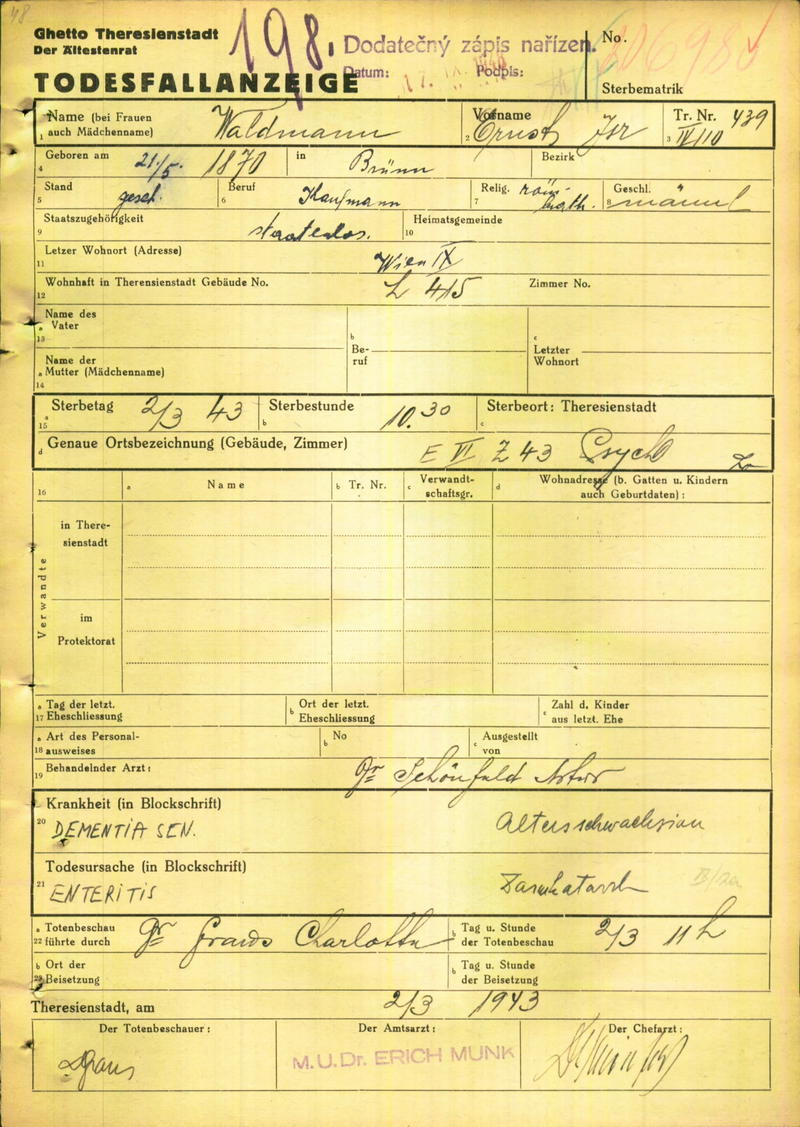 48
Ghetto Theresienstadt
Der Ältestenrat
TODESFALLANZEIGE
198.
Dodatečný zápis nařízen.
Datum: Podpis:
No.
Sterbematrik
Name (bei Frauen
1 auch Mädchenname)
Waldmann
Vorname
2 Ernst Isr
Tr. Nr. 439
3 IV/10
Geboren am 21/5. 1870 in Brünn Bezirk
4
Stand gesch. Beruf Kaufmann Relig. röm. kath. Geschl. männl
5 6 7 8
Staatszugehörigkeit staatenlos. Heimatsgemeinde
9 10
Letzer Wohnort (Adresse) Wien IX
11
Wohnhaft in Theresienstadt Gebäude No. L 415 Zimmer No.
12
Name des
a Vater
13
b
Be-
ruf
c
Letzter
Wohnort
Name der
a Mutter (Mädchenname)
14
Sterbetag 2/3 43 Sterbestunde 10.30 Sterbeort: Theresienstadt
a 15 b c
d Genaue Ortsbezeichnung (Gebäude, Zimmer) E VI Z 43 Psych
16 a Name b Tr. Nr. c Verwandt-
schaftsgr. d Wohnadresse (b. Gatten u. Kindern
auch Geburtdaten):
Verwandte
in There-
sienstadt
im
Protektorat
a Tag der letzt.
17 Eheschliessung
b Ort der letzt.
Eheschliessung
c Zahl d. Kinder
aus letzt. Ehe
a Art des Personal-
18 ausweises
b No
c Ausgestellt
von
Behandelnder Arzt: Dr Schönfeld Artur
19
Krankheit (in Blockschrift)
20 DEMENTIA SEN. Altersschwachsinn
Todesursache (in Blockschrift)
21 ENTERITIS Darmkatarrh
a Totenbeschau
22 führte durch
Dr Charlotte
b Tag u. Stunde
der Totenbeschau
2/3 11 h
b Ort der
23 Beisetzung
b Tag u. Stunde
der Beisetzung
Theresienstadt, am 2/3 1943
Der Totenbeschauer: Der Amtsarzt: Der Chefarzt:
M.U.Dr. ERICH MUNK